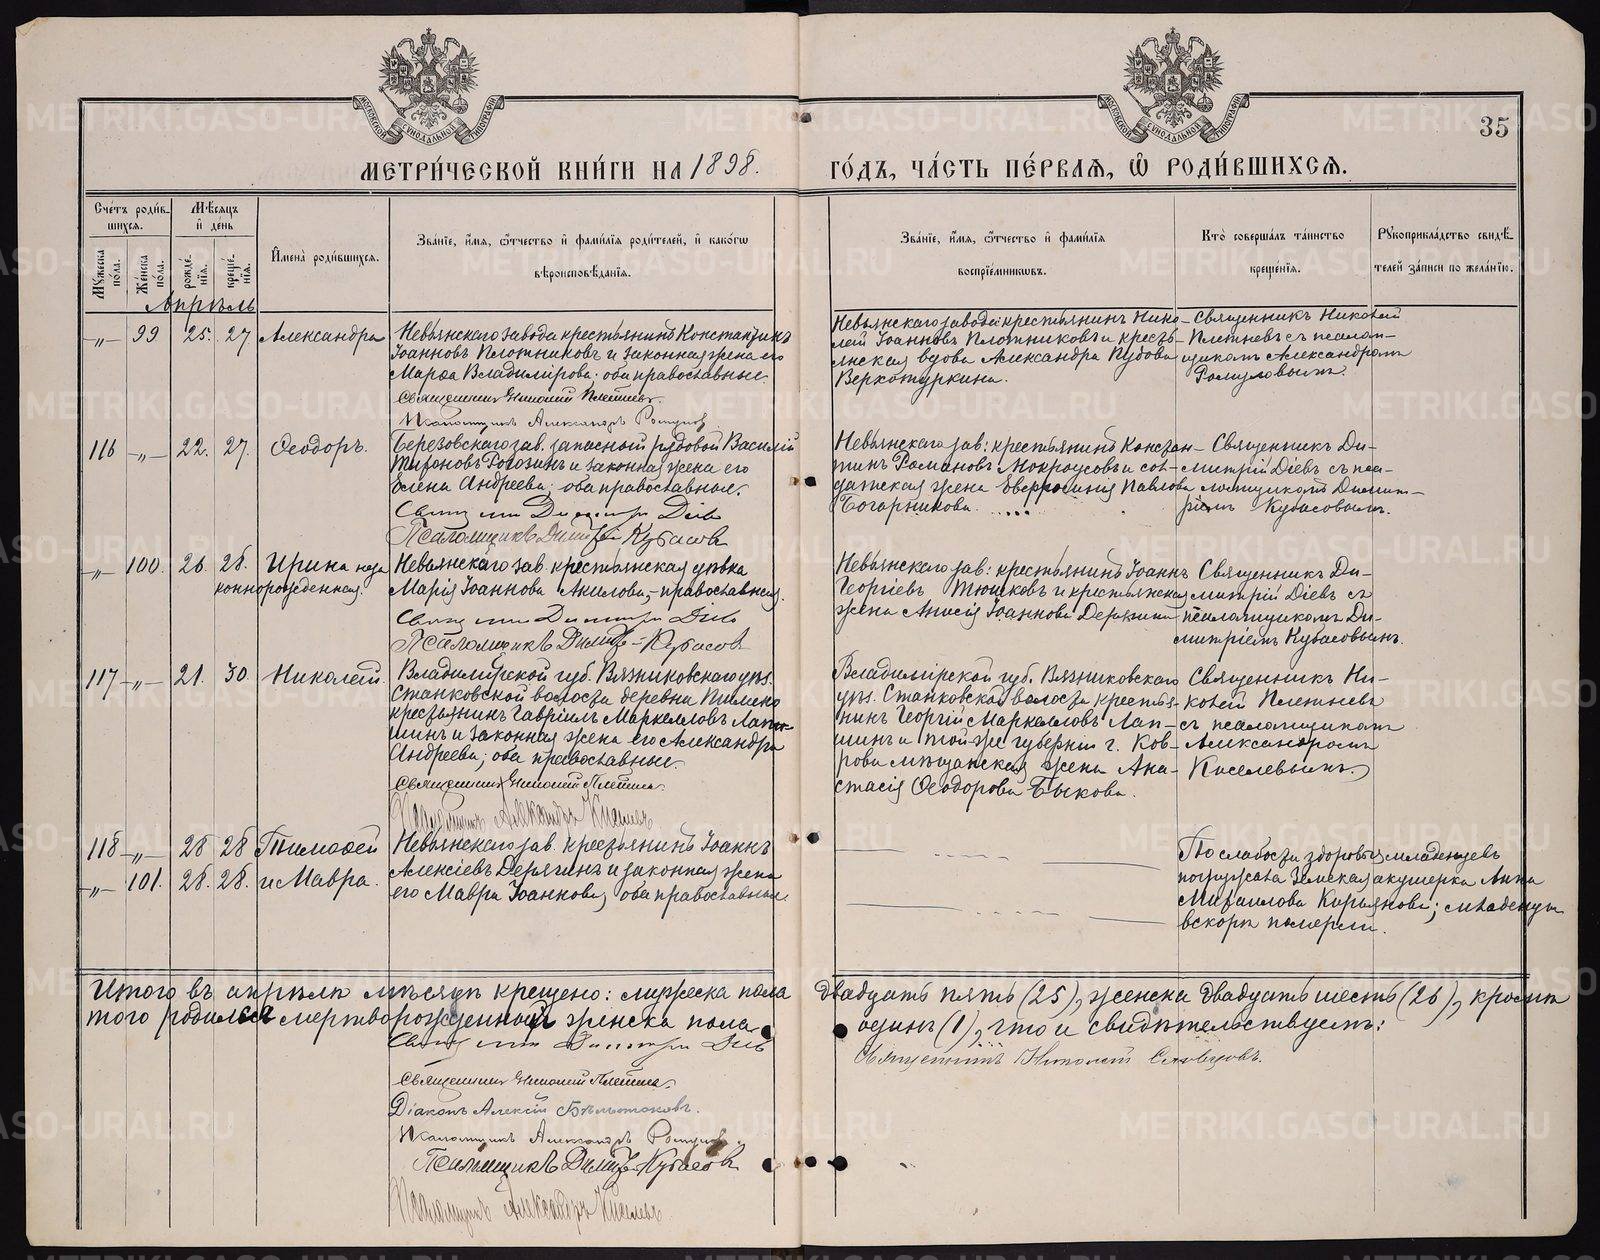 МЕТРИ́ЧЕСКОЙ КНИ́ГИ НА 1898.
ГО́ДЪ, ЧА́СТЬ ПЕ́РВАЯ, Ѿ РОДИ́ВШИХСЯ.
35
Сче́тъ роди́вшихся.
Мѣ́сяцъ и де́нь
Му́жеска по́ла.
Же́нска по́ла.
рожде́нїя.
креще́нїя.
Имена̀ роди́вшихся.
Зва́нїе, и́мя, о́тчество и фами́лїя роди́телей, и како́гѡ
вѣроисповѣ́данїя.
Зва́нїе, и́мя, о́тчество и фами́лїя
воспрїе́мникѡвъ.
Кто̀ соверша́лъ та́инство
креще́нїя.
Рукоприкла́дство свидѣ́-
телей за́писи по жела́нїю.
Апрѣль
„ 99 25. 27 Александра
Невьянскаго завода крестьянинъ Константинъ
Іоанновъ Плотниковъ и законная жена его
Марѳа Владимірова; оба православные.
Священникъ Николай Плетневъ.
Невьянскаго завода крестьянинъ Нико-
лай Іоанновъ Плотниковъ и кресть-
янская вдова Александра Пудова
Верхотуркина.
Священникъ Николай
Плетневъ съ псалом-
щикомъ Александромъ
116 „ 22. 27. Ѳеодоръ.
Березовскаго зав. запасный рядовой Василій
Мироновъ Рогозинъ и законная жена его
Елена Андреева; оба православные.
Псаломщикъ Димитрій Кубасовъ
Невьянскаго зав: крестьянинъ Констан-
тинъ Романовъ Мокроусовъ и сол-
датская жена Евфросинія Павлова
Богарникова.
Священникъ Ди-
митрій Діевъ съ пса-
ломщикомъ Димит-
ріемъ Кубасовымъ.
„ 100. 26. 28. Ирина неза
коннорожденная.
Невьянскаго зав. крестьянская дѣвка
Марія Іоаннова Акилова, православная.
Псаломщикъ Димитрій Кубасовъ
Невьянскаго зав: крестьянинъ Іоаннъ
Георгіевъ и крестьянская
жена Анисія Іоаннова Дерягина
Священникъ Ди-
митрій Діевъ съ
псаломщикомъ Ди-
митріемъ Кубасовымъ.
117 „ 21. 30. Николай.
Владимірской губ. Вязниковскаго уѣз.
Станковской волости деревни
крестьянинъ Гавріилъ Маркелловъ Лап-
шинъ и законная жена его Александра
Андреева; оба православные.
Священникъ Николай Плетневъ.
Псаломщикъ Александръ Киселевъ
Владимірской губ. Вязниковскаго
уѣз. Станковской волости крестья-
нинъ Георгій Маркелловъ Лап-
шинъ и той-же губерніи г. Ков-
рова мѣщанская жена Ана-
стасія Ѳеодорова Быкова.
Священникъ Ни-
колай Плетневъ
съ псаломщикомъ
Александромъ
Киселевымъ.
118 „ 28 28 Тимоѳей
„ 101. 28. 28. и Мавра.
Невьянскаго зав. крестьянинъ Іоаннъ
Алексіевъ Дерягинъ и законная жена
его Мавра Іоаннова, оба православные.
По слабости здоровья младенцевъ
погружала Земская акушерка Анна
Михаилова Кирьянова; младенцы
вскорѣ померли.
Итого въ апрѣлѣ мѣсяцѣ крещено: мужеска пола
двадцать пять (25), женска двадцать шесть (26), кромѣ
того родился мертворожденной женска пола
одинъ (1), что и свидѣтельствуемъ:
Священникъ Николай Словцовъ.
Священникъ Николай Плетневъ.
Діаконъ Алексій
Псаломщикъ Димитрій Кубасовъ
Псаломщикъ Александръ Киселевъ.